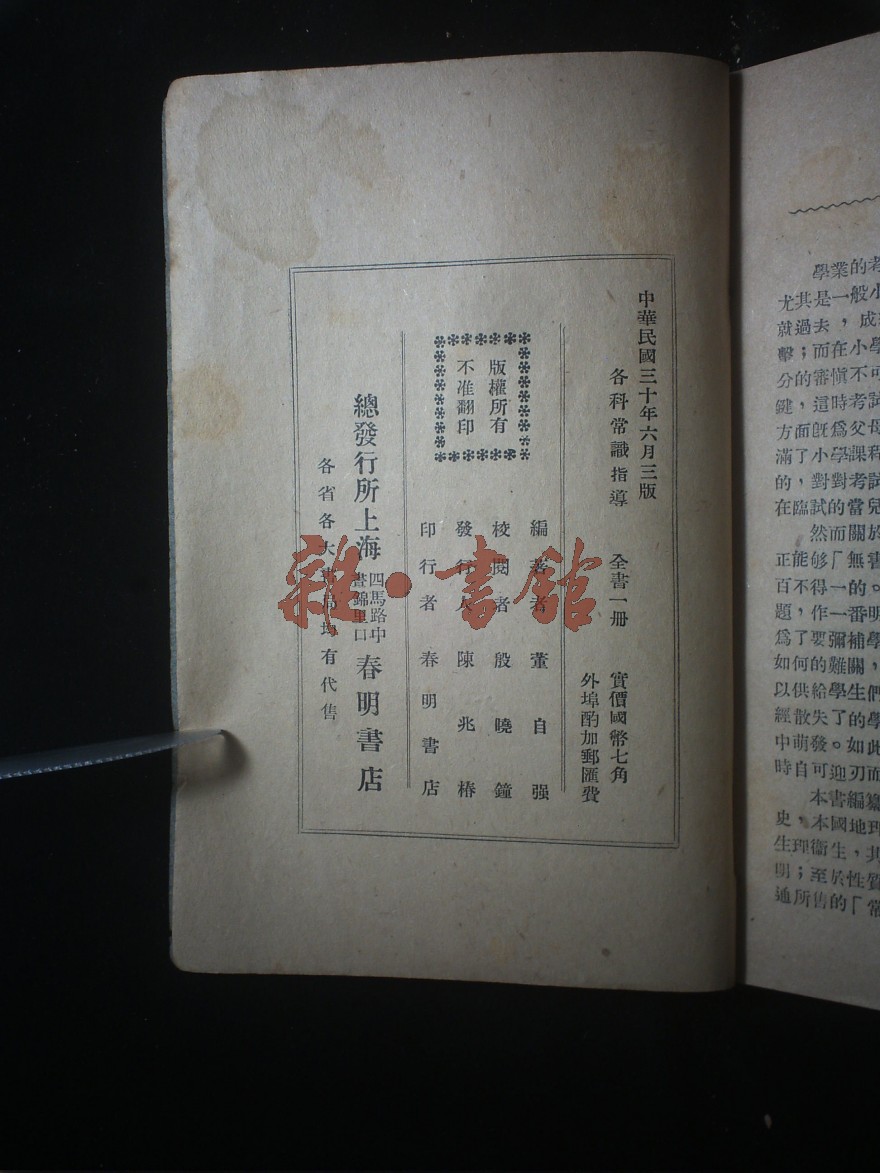 中華民國三十年六月三版
各科常識指導　全書一冊　實價國幣七角
外埠酌加郵匯費
編著者董自强
校閱者殷曉鐘
發行人陳兆椿
印行者春明書店
版權所有
不准翻印
總發行所上海四馬路中畫錦里口春明書店
各省各大書局均有代售
雜·書館
學業的考
尤其是一般小
就過去，成
擊；而在小學
分的審愼不可
鍵，這時考試
方面旣爲父母
滿了小學課程
的，對對考試
在臨試的當兒
然而關於
正能够「無書
百不得一的。
題，作一番明
爲了要彌補學
如何的難關，
以供給學生們
經散失了的學
中萌發。如此
時自可迎刃而
本書編纂
史，本國地理
生理衞生，其
明；至於性質
通所售的「常